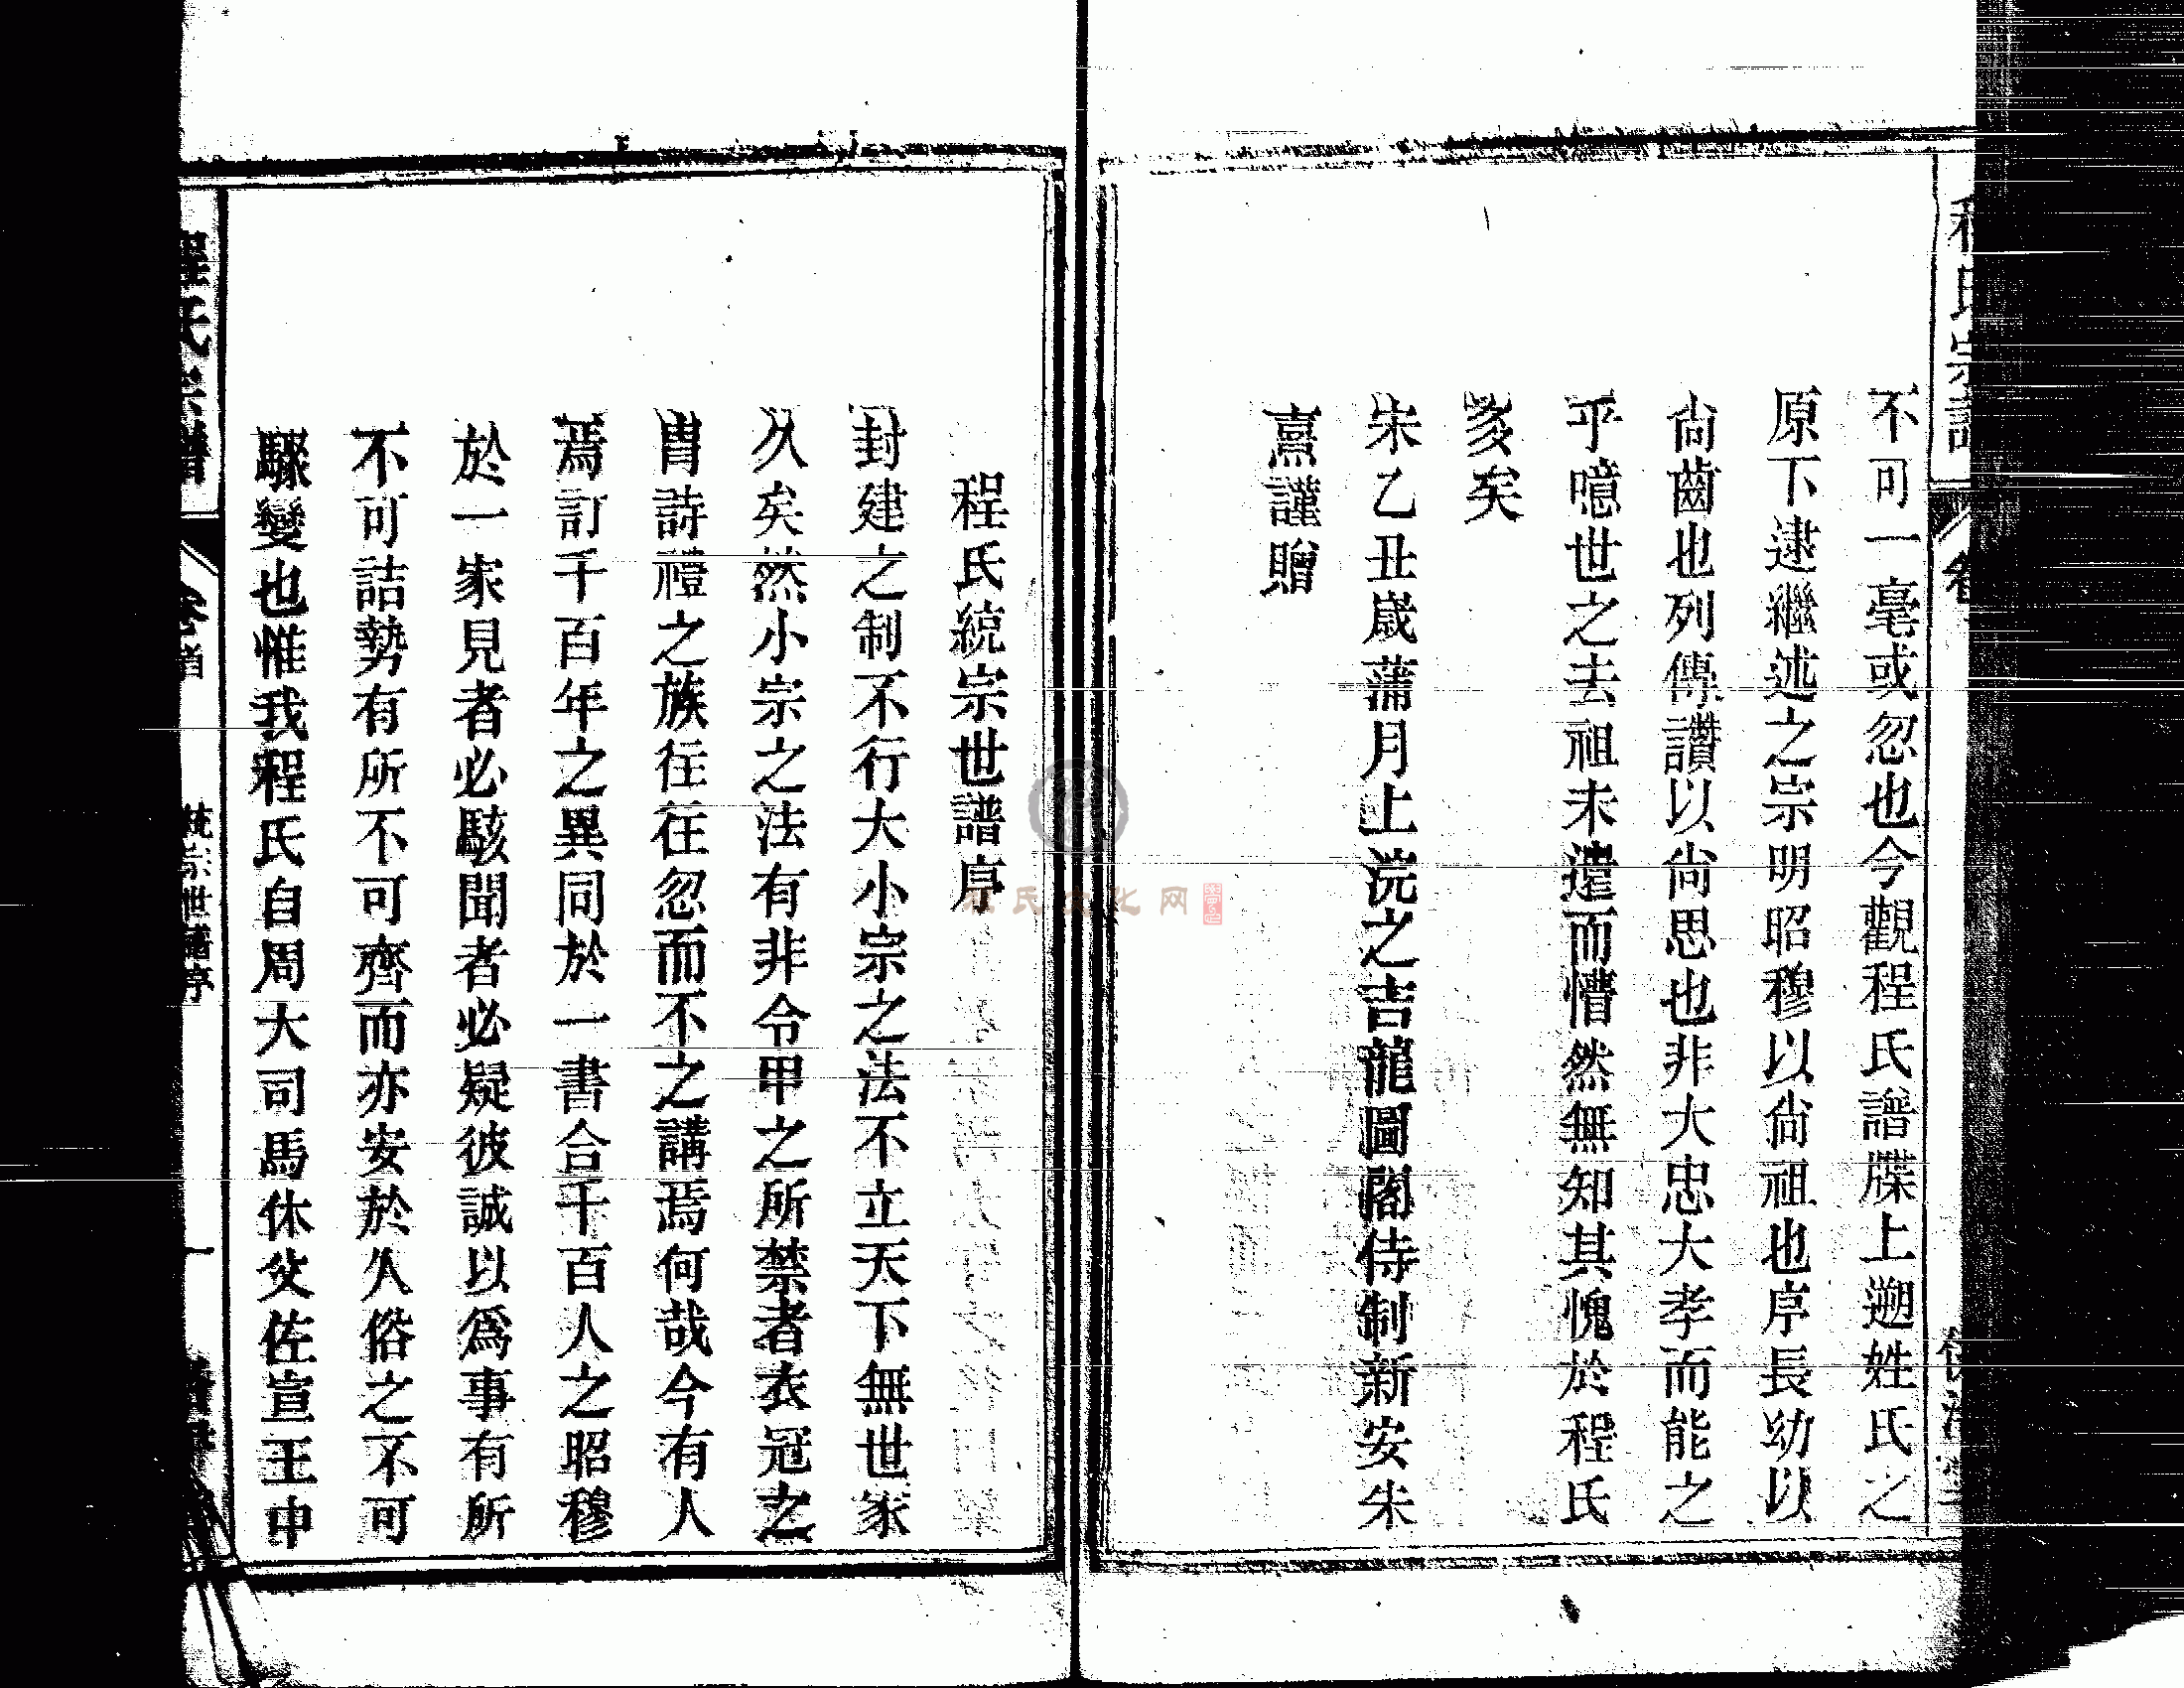 程氏宗譜
不可一毫或忽也今觀程氏譜牒上遡姓氏之
原下逮繼述之宗明昭穆以尙祖也序長幼以
尙齒也列傳讚以尙思也非大忠大孝而能之
乎噫世之去祖未遠而懵然無知其愧於程氏
多矣
宋乙丑歲蒲月上浣之吉龍圖閣侍制新安朱
熹謹贈
程氏統宗世譜序
封建之制不行大小宗之法不立天下無世家
久矣然小宗之法有非令甲之所禁者衣冠之
胄詩禮之族往往忽而不之講焉何哉今有人
焉訂千百年之異同於一書合千百人之昭穆
於一家見者必駭聞者必疑彼誠以爲事有所
不可詰勢有所不可齊而亦安於人俗之不可
驟變也惟我程氏自周大司馬休父佐宣王中
程氏宗譜
卷首
統宗世譜序
一